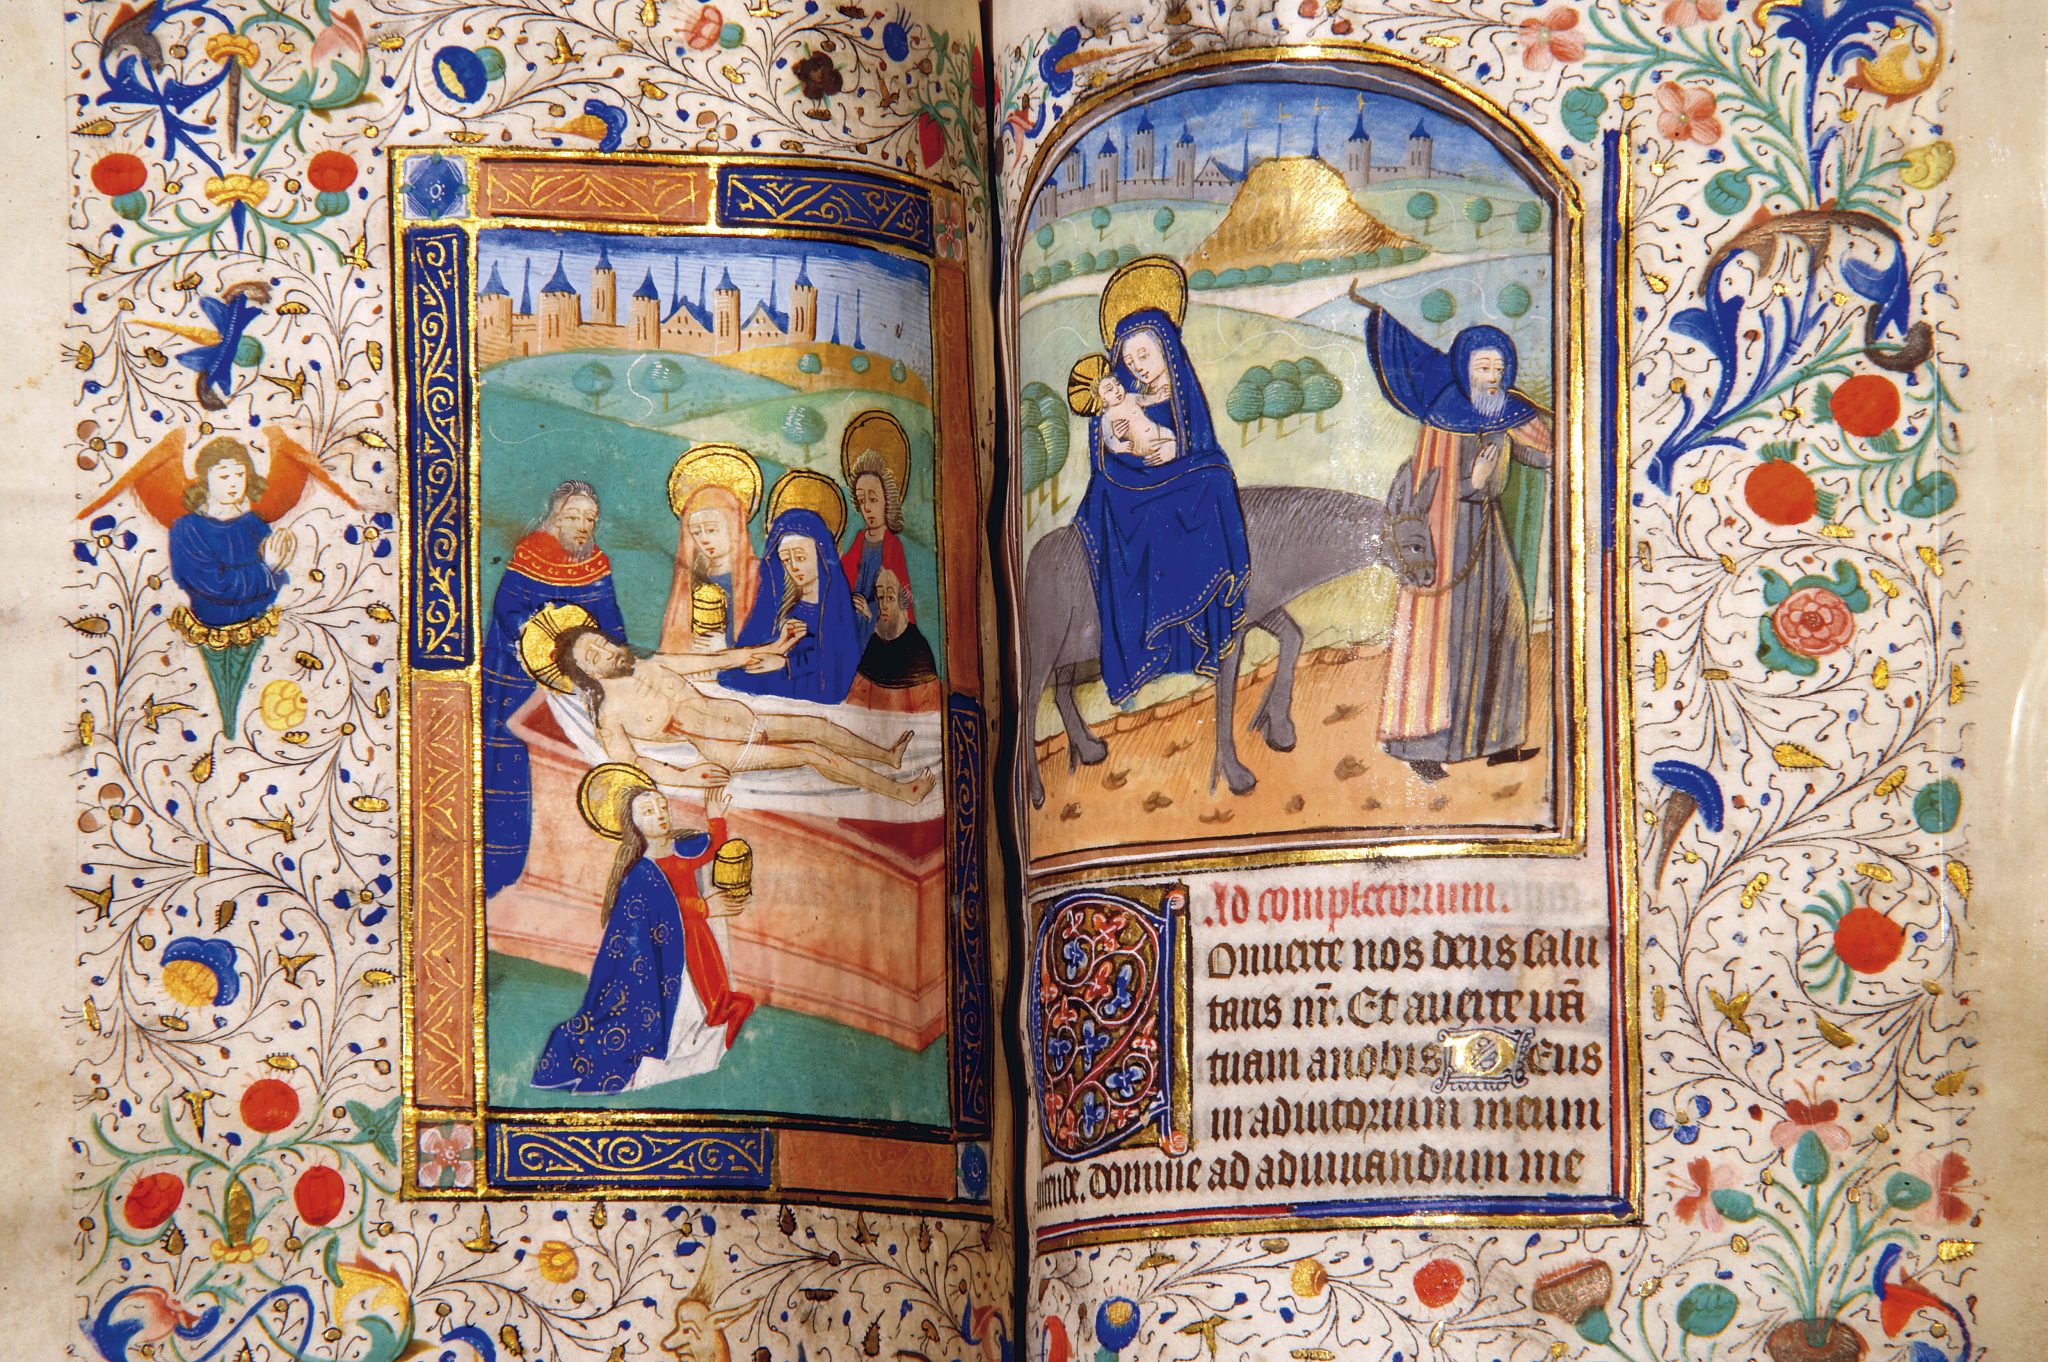 Ad completorium.
Onuerte nos deus salu
taris nr̄. Et auerte irā
tuam a nobis Deus
in adiutorium meum
intende. Domine ad adiuuandum me